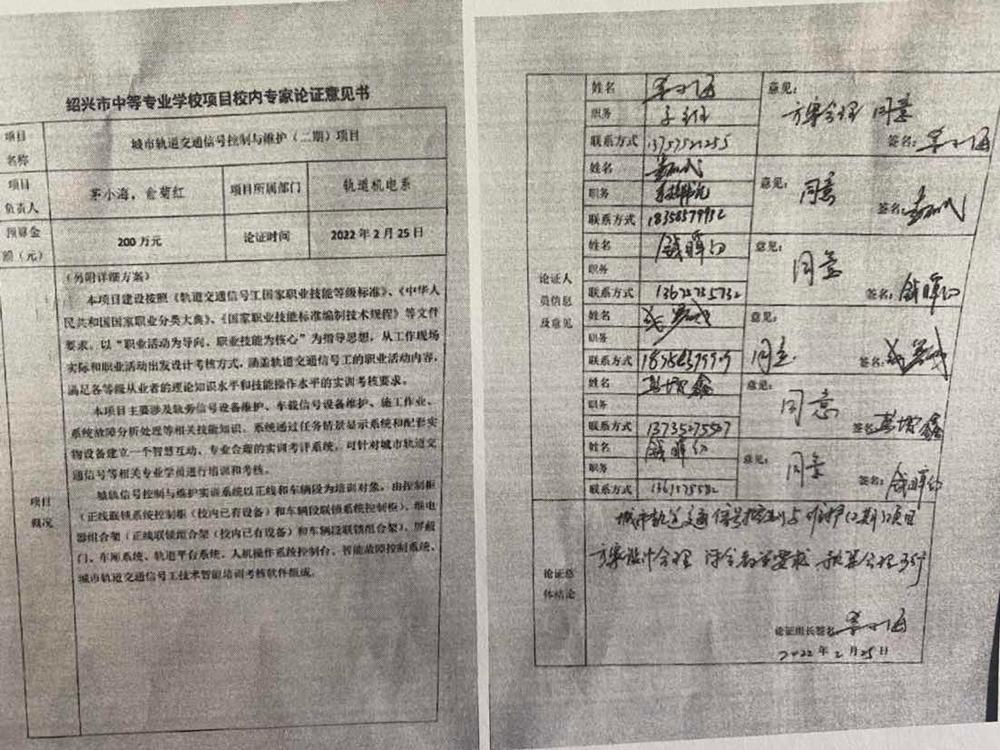 绍兴市中等专业学校项目校内专家论证意见书
项目名称
城市轨道交通信号控制与维护（二期）项目
项目负责人
茅小海，俞菊红
项目所属部门
轨道机电系
预算金额（元）
200 万元
论证时间
2022 年 2 月 25 日
项目概况
（另附详细方案）
本项目建设按照《轨道交通信号工国家职业技能等级标准》、《中华人
民共和国国家职业分类大典》、《国家职业技能标准编制技术规程》等文件
要求，以“职业活动为导向、职业技能为核心”为指导思想，从工作现场
实际和职业活动出发设计考核方式，涵盖轨道交通信号工的职业活动内容，
满足各等级从业者的理论知识水平和技能操作水平的实训考核要求。
本项目主要涉及轨旁信号设备维护、车载信号设备维护、施工作业、
系统故障分析处理等相关技能知识。系统通过任务情景显示系统和配套实
物设备建立一个智慧互动、专业合理的实训考评系统，可针对城市轨道交
通信号等相关专业学员进行培训和考核。
城轨信号控制与维护实训系统以正线和车辆段为培训对象，由控制柜
（正线联锁系统控制柜（校内已有设备）和车辆段联锁系统控制柜）、继电
器组合架（正线联锁组合架（校内已有设备）和车辆段联锁组合架）、屏蔽
门、车厢系统、轨道平台系统、人机操作系统控制台、智能故障控制系统、
城市轨道交通信号工技术智能培训考核软件组成。
论证人员信息及意见
姓名
意见：
方案合理 同意
职务
联系方式
签名：
姓名
意见：
同意
职务
联系方式 18358579932
签名：
姓名 钱晖
意见：
同意
职务
联系方式
签名：钱晖
姓名
意见：
同意
职务
联系方式
签名：
姓名 彭增鑫
意见：
同意
职务
联系方式 13735275567
签名：彭增鑫
姓名 钱晖
意见：
同意
职务
联系方式
签名：钱晖
论证总体结论
城市轨道交通信号控制与维护（二期）项目
方案设计合理 符合教学要求 预算合理可行
论证组长签名：
2022 年 2 月 25 日